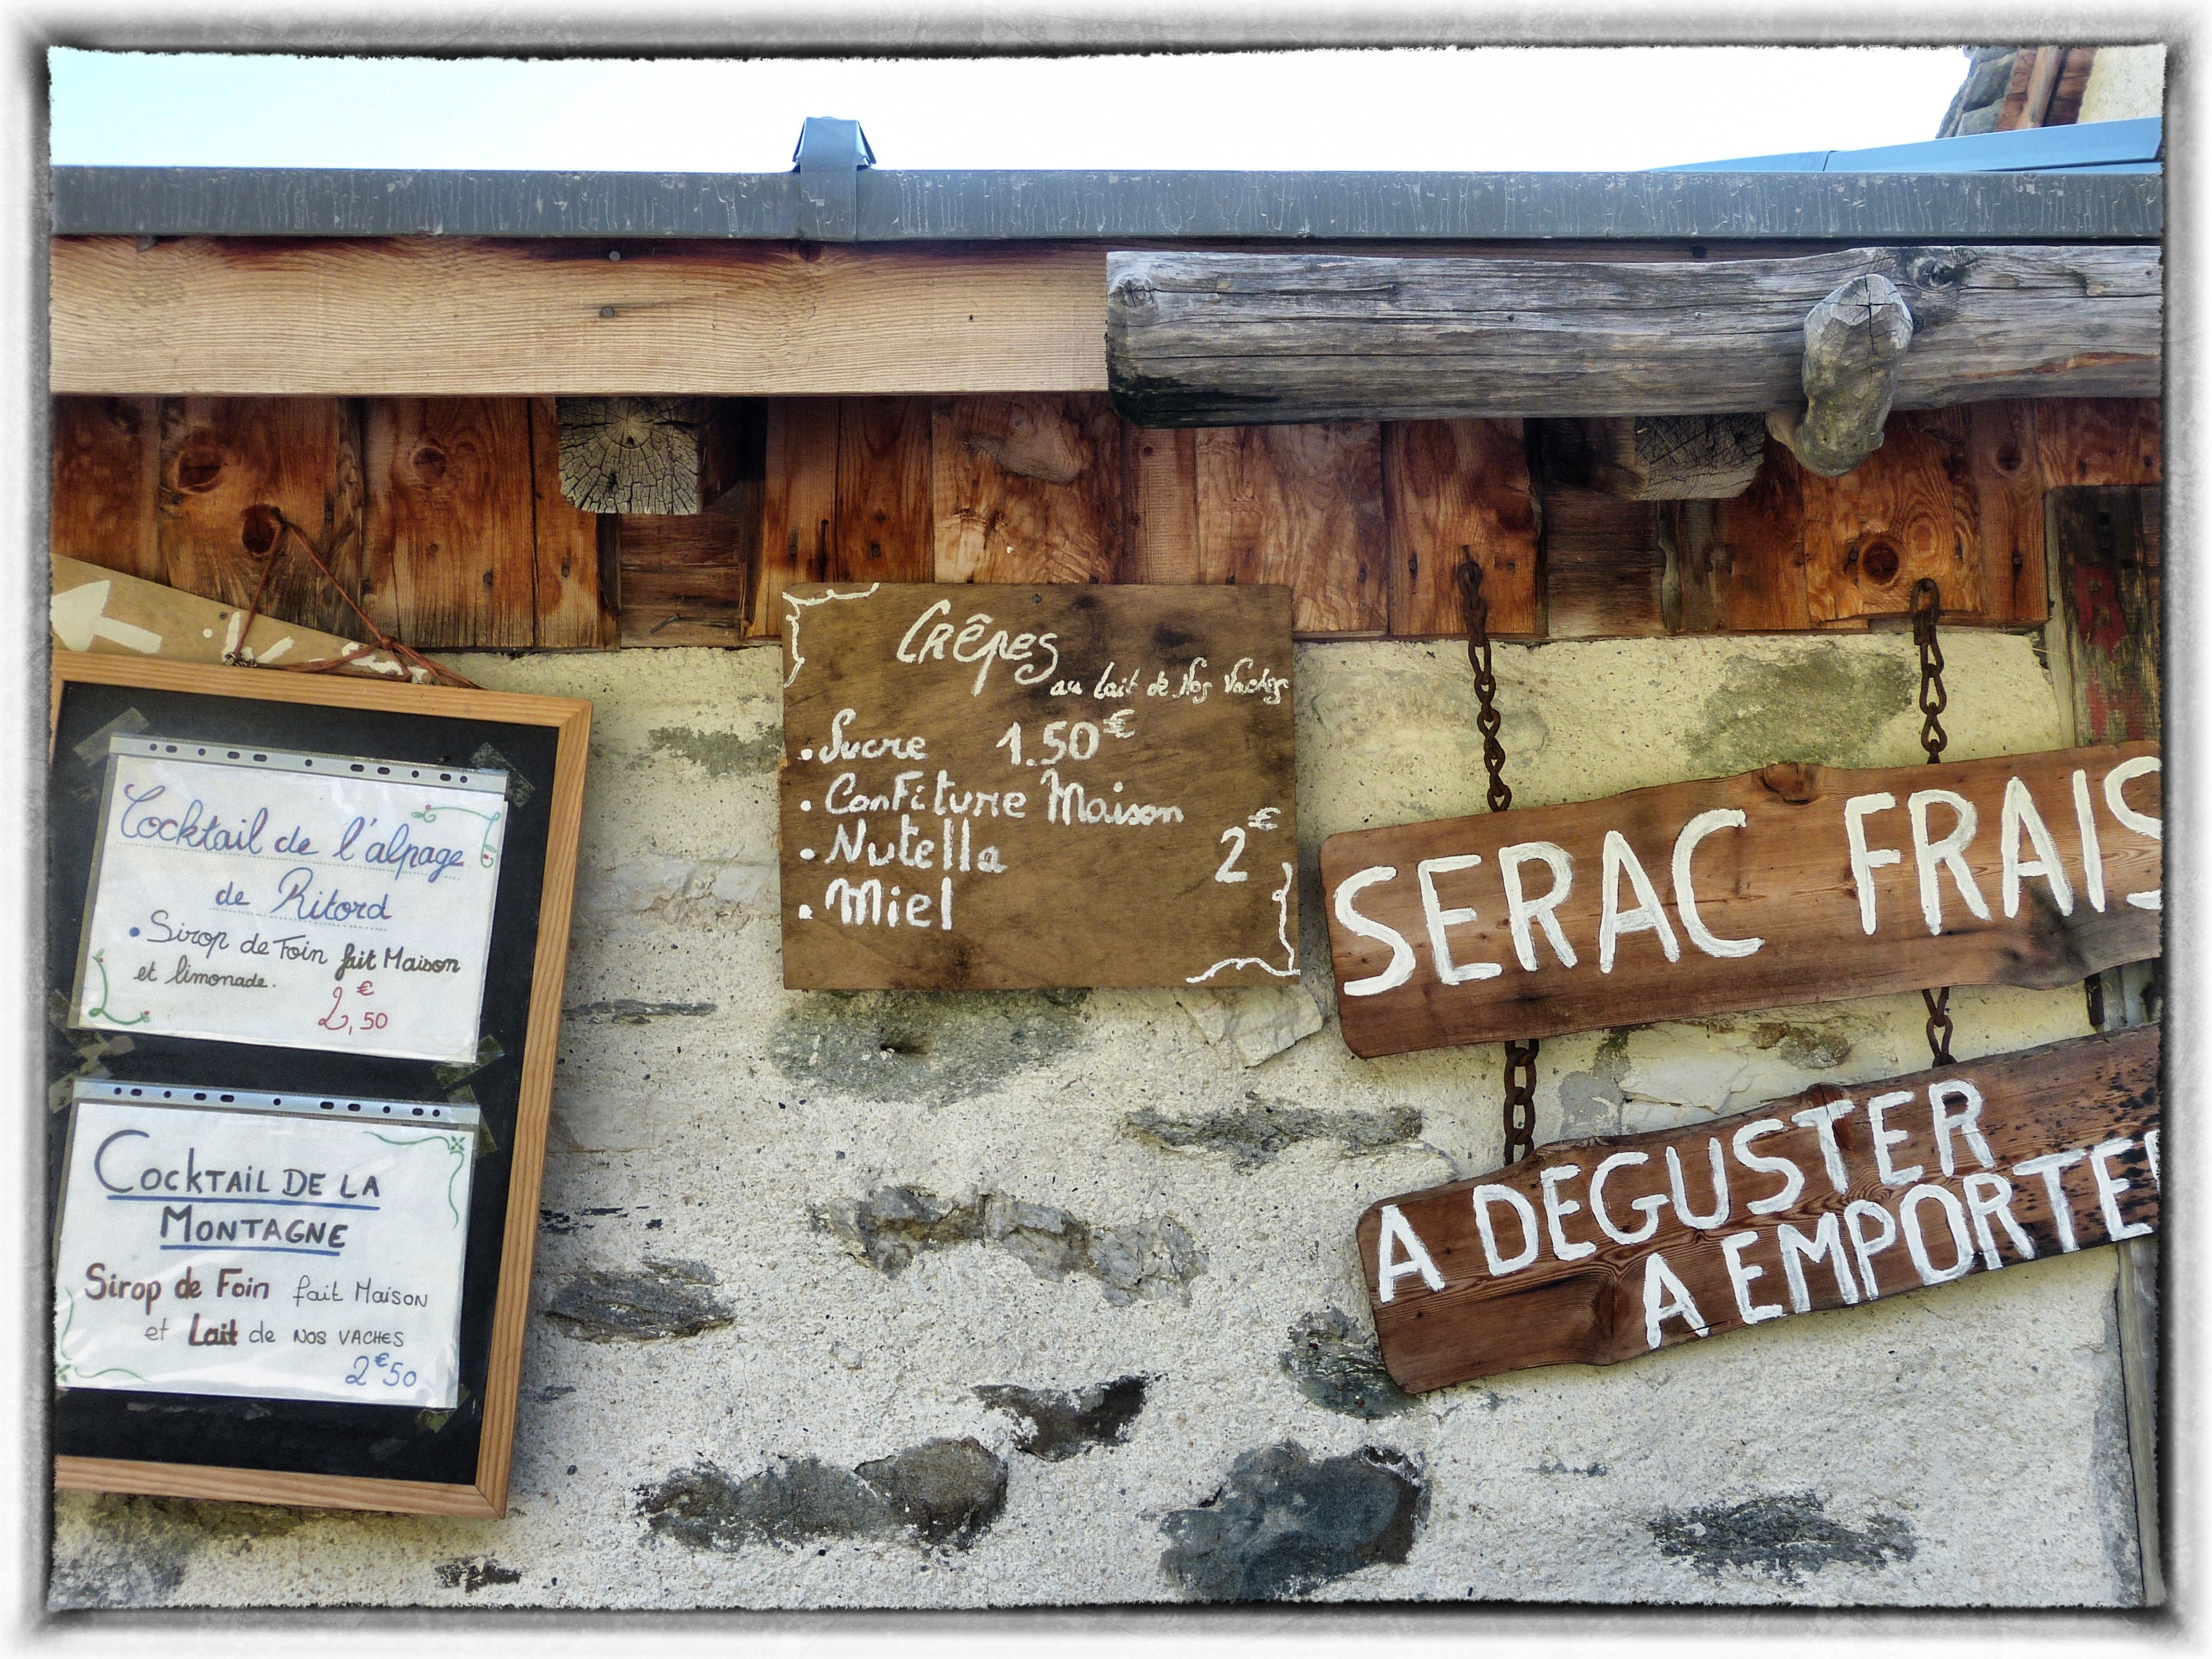 Cocktail de l'alpage
de Ritord
• Sirop de Foin fait Maison
et limonade.
2,€50
COCKTAIL DE LA
MONTAGNE
Sirop de Foin fait Maison
et Lait de NOS VACHES
2€50
Crêpes
au lait de Nos Vaches
• Sucre 1.50€
• Confiture Maison
• Nutella 2€
• Miel
SERAC FRAIS
A DEGUSTER
A EMPORTER